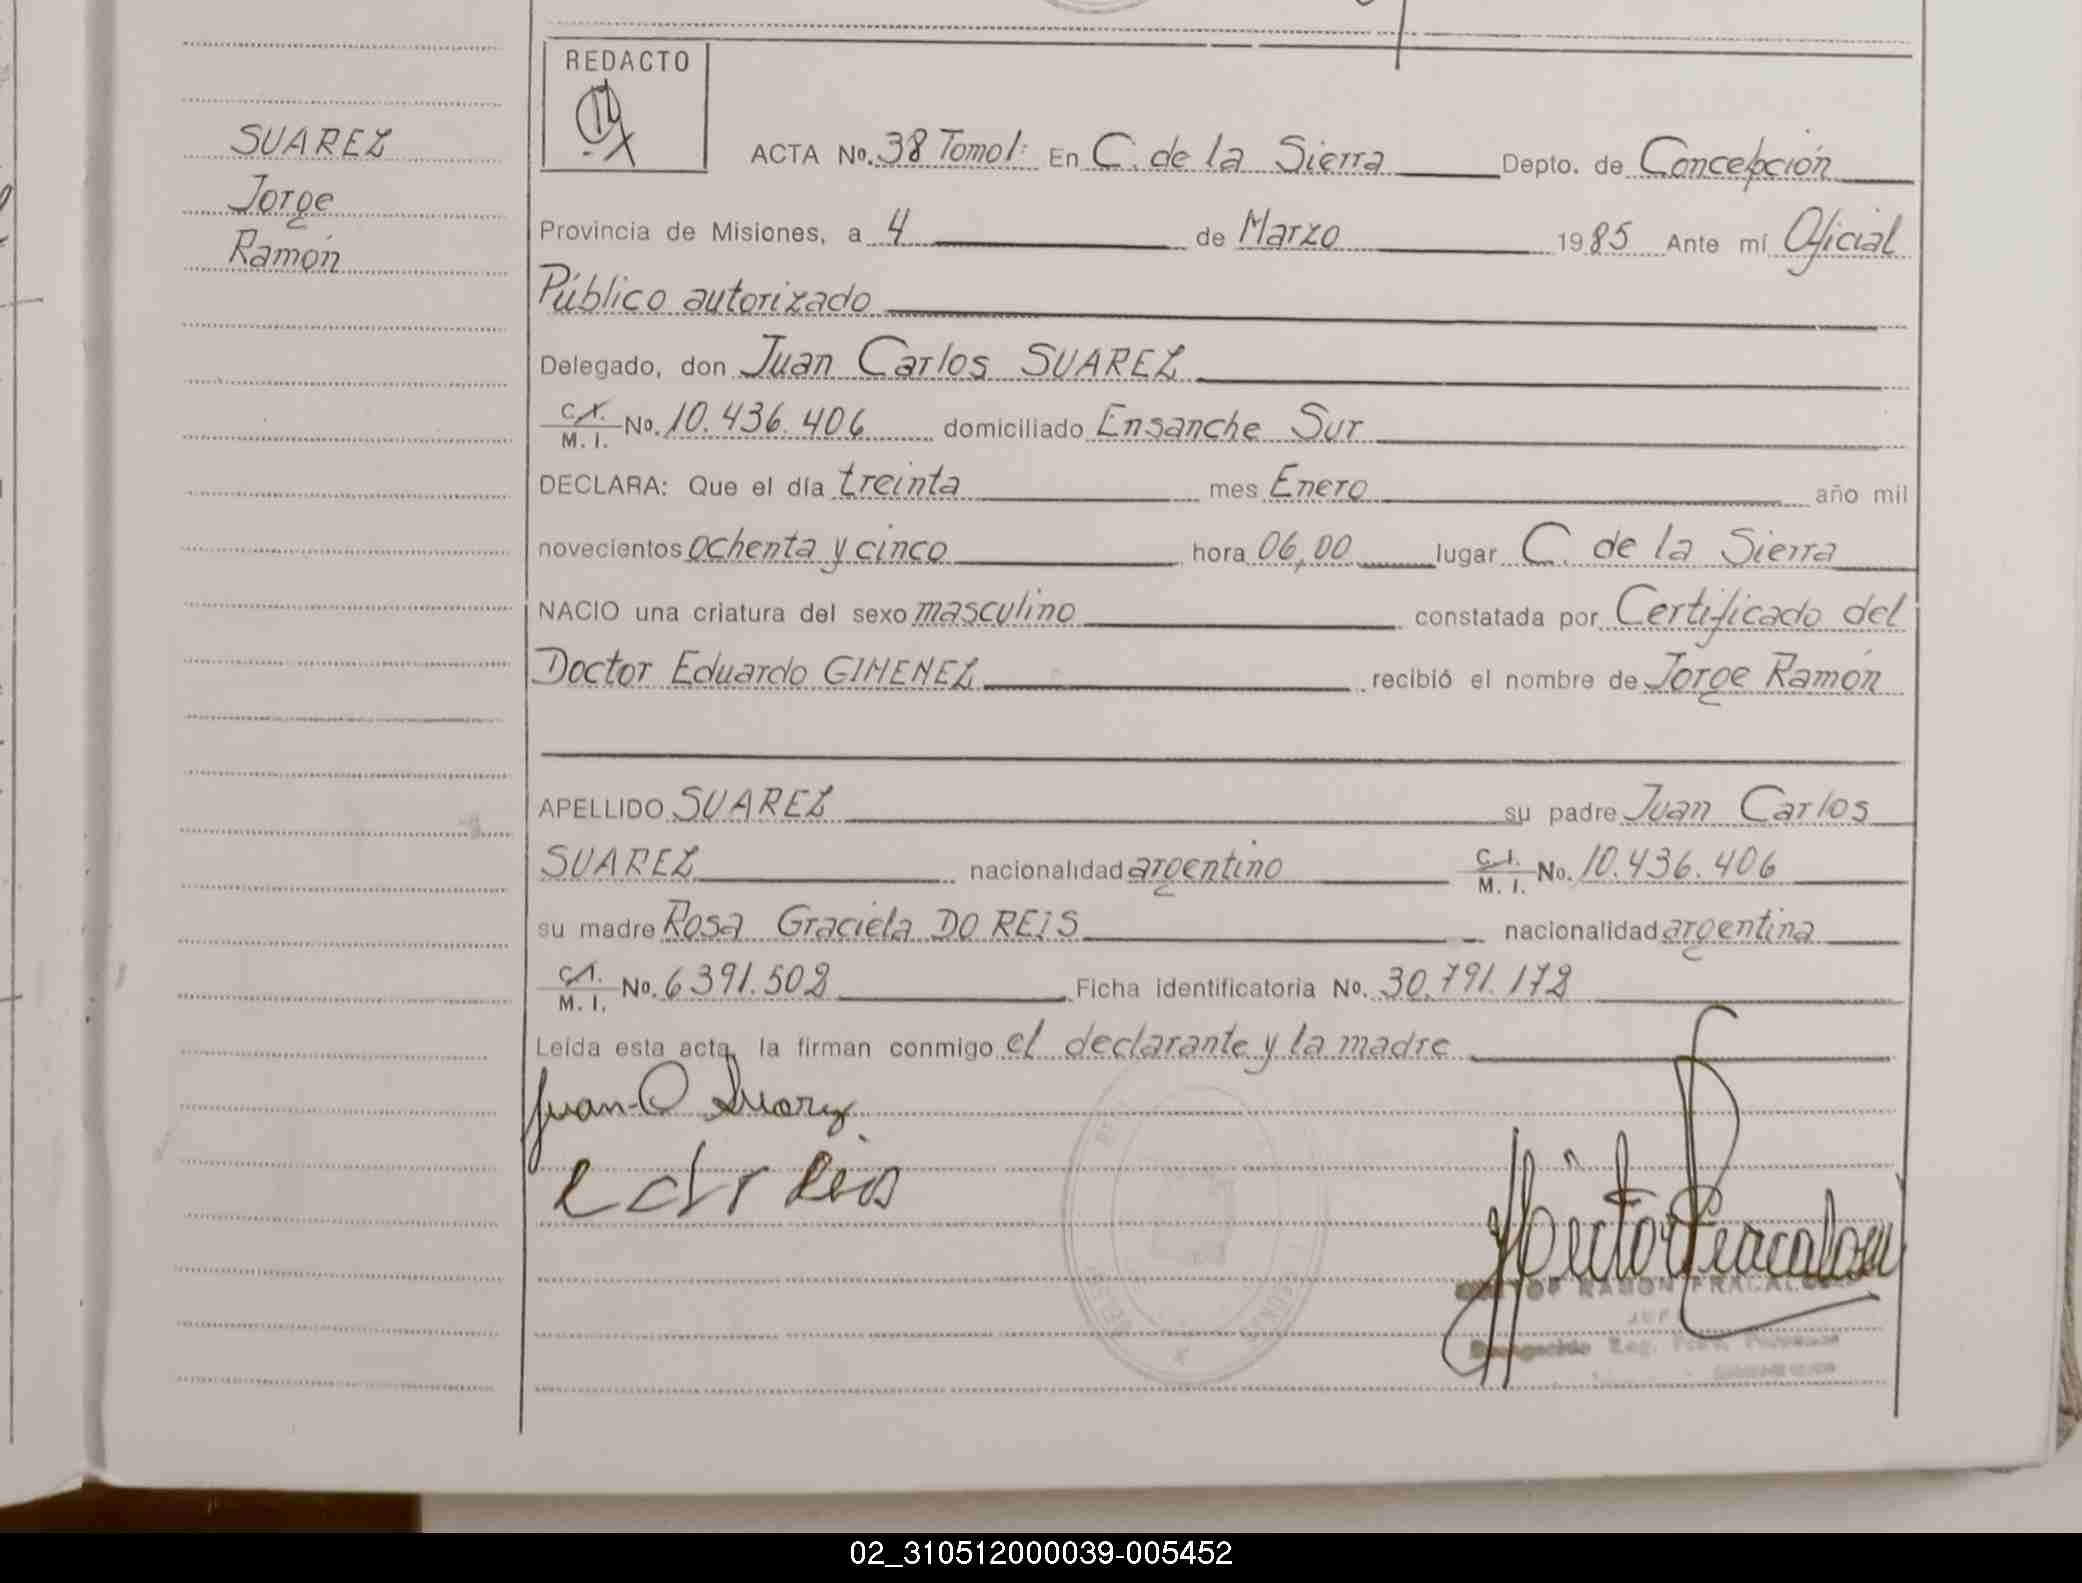 REDACTO
SUAREZ
Jorge
Ramón
ACTA No. 38 Tomo I: En C. de la Sierra Depto. de Concepción
Provincia de Misiones, a 4 de Marzo 1985 Ante mí Oficial
Público autorizado
Delegado, don Juan Carlos SUAREZ
C. I.
M. I. No. 10.436.406 domiciliado Ensanche Sur
DECLARA: Que el día treinta mes Enero año mil
novecientos ochenta y cinco hora 06,00 lugar C. de la Sierra
NACIO una criatura del sexo masculino constatada por Certificado del
Doctor Eduardo GIMENEZ recibió el nombre de Jorge Ramón
APELLIDO SUAREZ su padre Juan Carlos
SUAREZ nacionalidad argentino C. I. M. I. No. 10.436.406
su madre Rosa Graciela DO REIS nacionalidad argentina
C. I.
M. I. No. 6391.502 Ficha identificatoria No. 30.791.172
Leída esta acta, la firman conmigo el declarante y la madre
Juan C Suarez
Reis
Hector Fracalossi
RAMON
02_310512000039-005452